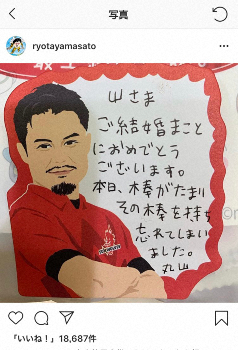 写真
ryotayamasato
山さま
ご結婚まこと
におめでとう
ございます。
本日、棒がたまり
その棒を持ち
忘れてしまい
ました。
丸山
「いいね！」18,687件